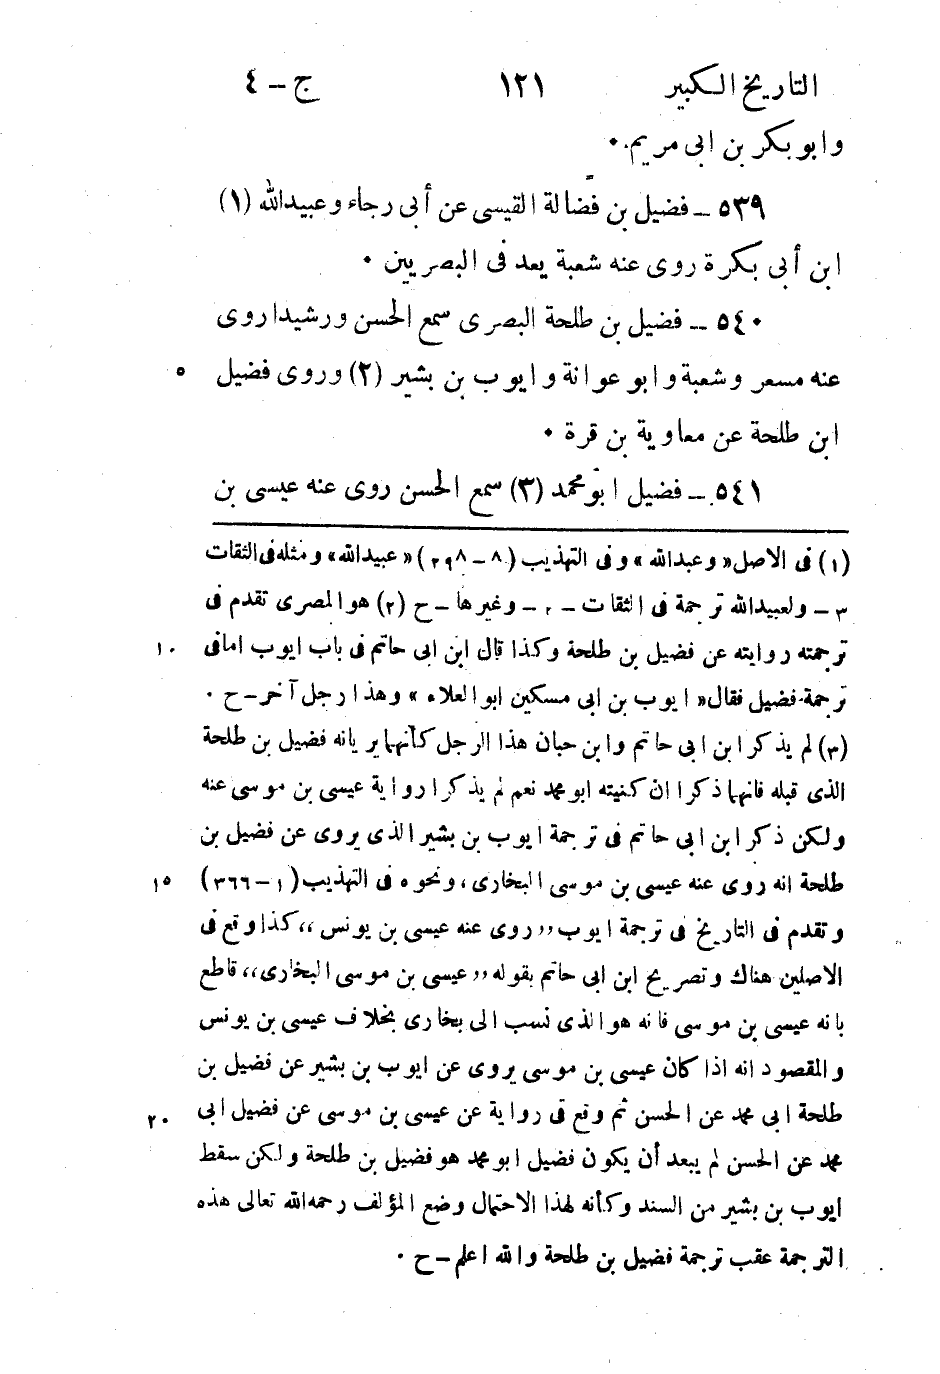 التاريخ الكبير ١٢١ ج - ٤
وابو بكر بن ابى مريم ٠
٥٣٩ - فضيل بن فضالة القيسى عن أبى رجاء وعبيدالله (١)
ابن أبى بكرة روى عنه شعبة يعد فى البصريين ٠
٥٤٠ - فضيل بن طلحة البصرى سمع الحسن ورشيدا روى
عنه مسعر وشعبة وابو عوانة وايوب بن بشير (٢) وروى فضيل ٥
ابن طلحة عن معاوية بن قرة ٠
٥٤١ - فضيل ابو محمد (٣) سمع الحسن روى عنه عيسى بن
(١) فى الاصل « وعبدالله » وفى التهذيب (٨ - ٢٩٨) « عبيدالله » ومثله فى الثقات
٣ - ولعبيدالله ترجمة فى الثقات - ٢ - وغيرها - ح (٢) هو المصرى تقدم فى
ترجمته روايته عن فضيل بن طلحة وكذا قال ابن ابى حاتم فى باب ايوب امافى ١٠
ترجمة فضيل فقال « ايوب بن ابى مسكين ابو العلاء » وهذا رجل آخر - ح ٠
(٣) لم يذكر ابن ابى حاتم وابن حبان هذا الرجل كأنهما يريانه فضيل بن طلحة
الذى قبله فانهما ذكرا ان كنيته ابو محمد نعم لم يذكرا رواية عيسى بن موسى عنه
ولكن ذكر ابن ابى حاتم فى ترجمة ايوب بن بشير الذى يروى عن فضيل بن
طلحة انه روى عنه عيسى بن موسى البخارى، ونحوه فى التهذيب (١ - ٣٦٦) ١٥
وتقدم فى التاريخ فى ترجمة ايوب ,, روى عنه عيسى بن يونس ،، كذا وقع فى
الاصلين هناك وتصريح ابن ابى حاتم بقوله ,, عيسى بن موسى البخارى ،، قاطع
بانه عيسى بن موسى فانه هو الذى نسب الى بخارى بخلاف عيسى بن يونس
والمقصود انه اذا كان عيسى بن موسى يروى عن ايوب بن بشير عن فضيل بن
طلحة ابى محمد عن الحسن ثم وقع فى رواية عن عيسى بن موسى عن فضيل ابى ٢٠
محمد عن الحسن لم يبعد أن يكون فضيل ابو محمد هو فضيل بن طلحة ولكن سقط
ايوب بن بشير من السند وكأنه لهذا الاحتمال وضع المؤلف رحمه الله تعالى هذه
الترجمة عقب ترجمة فضيل بن طلحة والله اعلم - ح ٠